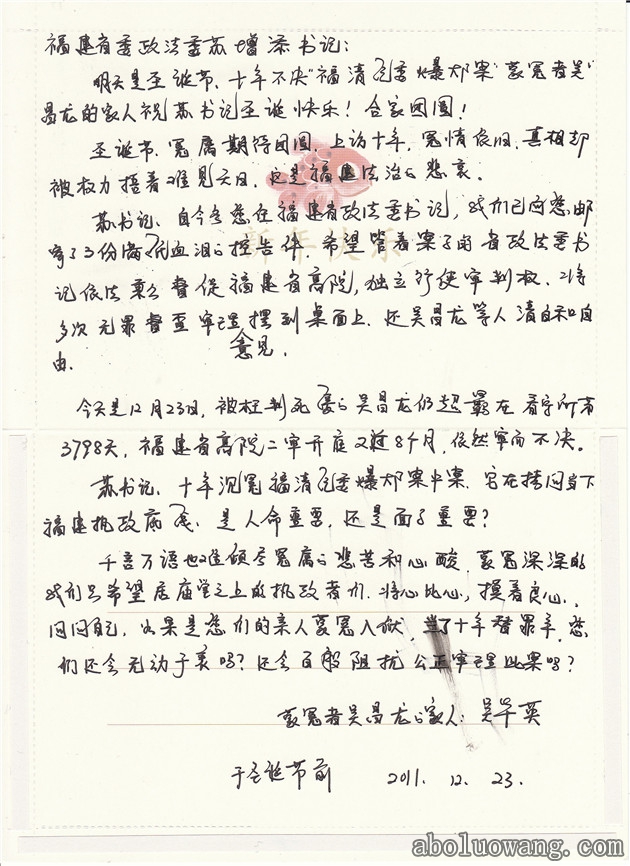 福建省委政法委苏增添书记：
明天是圣诞节、十年不决“福清纪委爆炸案”蒙冤者吴
昌龙的家人祝苏书记圣诞快乐！合家团圆！
圣诞节、冤属期待团圆、上访十年，冤情依旧、真相却
被权力捂着难见天日，这是福建法治的悲哀。
苏书记、自今年您任福建省政法委书记，我们已向您邮
寄了3份满纸血泪的控告件、希望皆着案子的省政法委书
记依法秉公督促福建省高院，独立行使审判权、将
多次无罪督查审理摆到桌面上、还吴昌龙等人清白和自
由、
意见、
新年快乐
今天是12月23日，被枉判死缓的吴昌龙仍超羁在看守所第
3798天，福建省高院二审开庭又过8个月，依然审而不决。
苏书记、十年沉冤福清纪委爆炸案件案、实在拷问当下
福建执政底线、是人命重要，还是面子重要？
千言万语也难倾尽冤属的悲苦和心酸、蒙冤深深的
我们只希望居庙堂之上的执政者们、将心比心，摸着良心、
问问自己、如果是您们的亲人蒙冤入狱，当了十年替罪羊、您
们还会无动于衷吗？还会百般阻扰公正审理此案吗？
蒙冤者吴昌龙的家人：吴华英
于圣诞节前 2011. 12. 23.
aboluowang.com